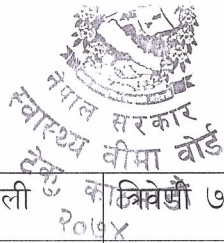 नेपाल सरकार
स्वास्थ्य बीमा बोर्ड
टेकु, काठमाडौं
२०७४
ली
त्रिवेणी ७